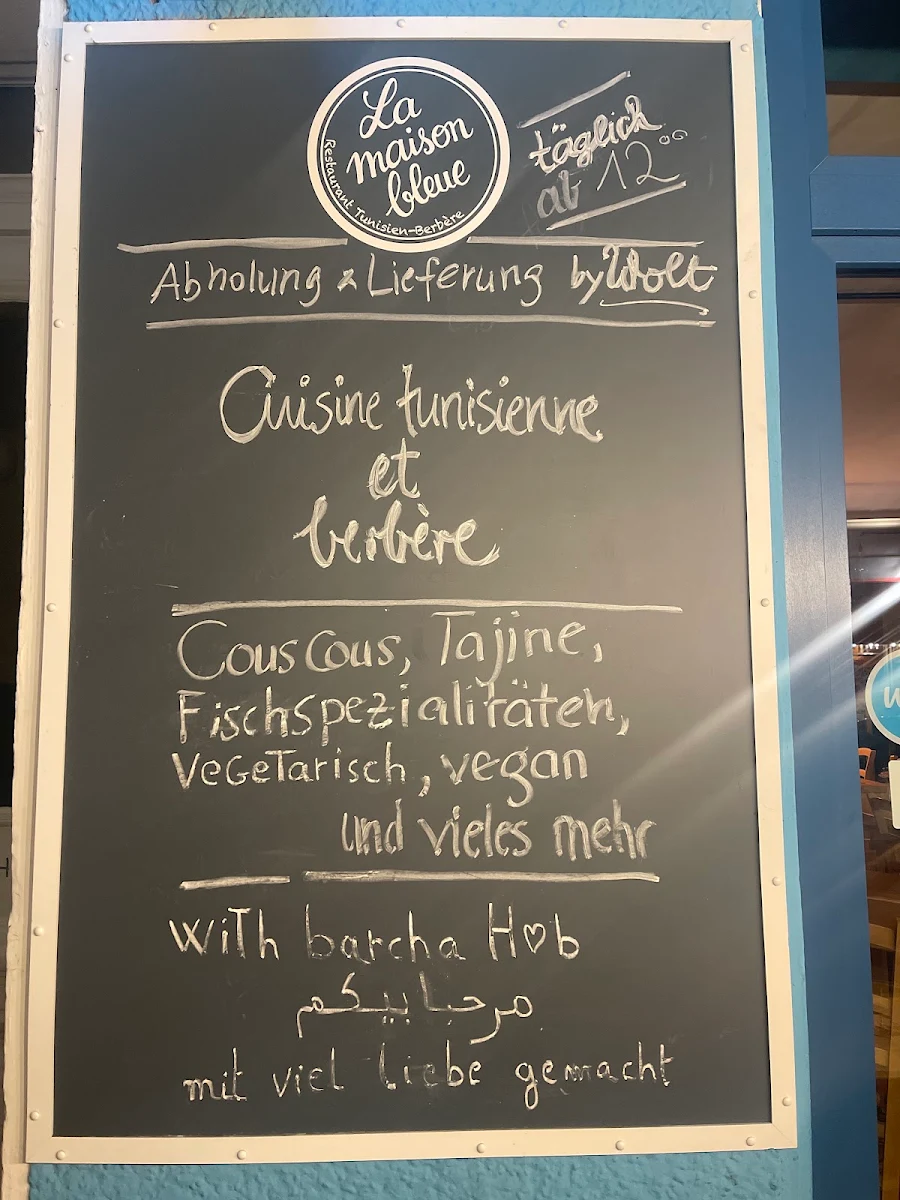 La
maison
bleue
Restaurant Tunisien-Berbère
täglich
ab 12°°
Abholung & Lieferung by Wolt
Cuisine tunisienne
et
berbère
Couscous, Tajine,
Fischspezialitäten,
VeGeTarisch, vegan
und vieles mehr
wiTh barcha H♡b
مرحبا بيكم
mit viel liebe gemacht